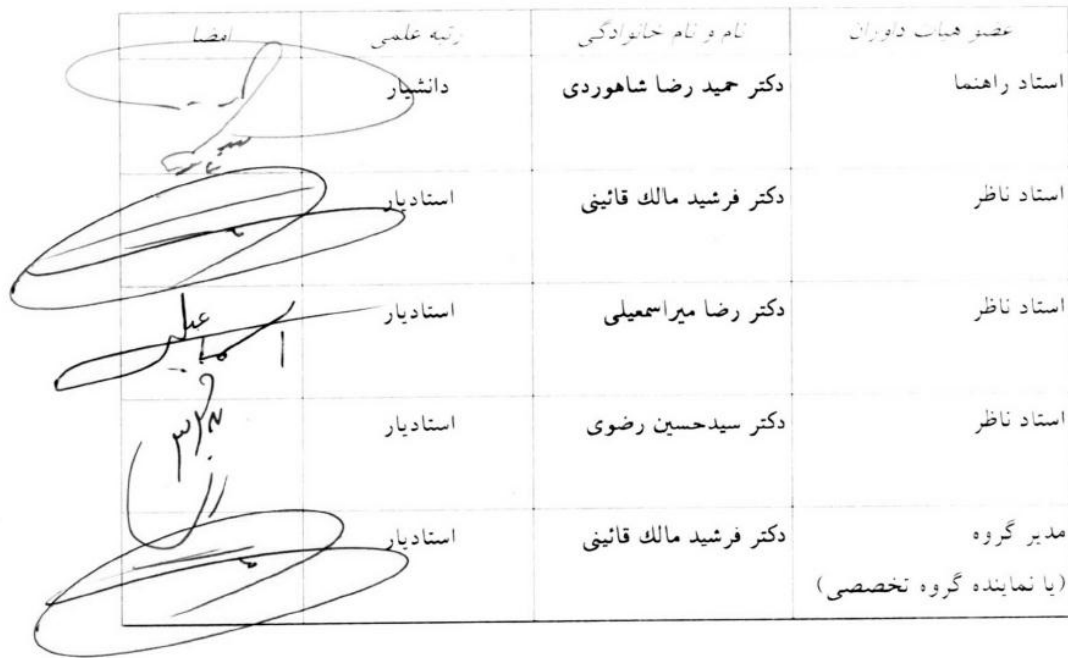 عضو هیات داوران نام و نام خانوادگی رتبه علمی امضا
استاد راهنما دکتر حمید رضا شاهوردی دانشیار
استاد ناظر دکتر فرشید مالك قائینی استادیار
استاد ناظر دکتر رضا میراسمعیلی استادیار
استاد ناظر دکتر سیدحسین رضوی استادیار
مدیر گروه دکتر فرشید مالك قائینی استادیار
(یا نماینده گروه تخصصی)